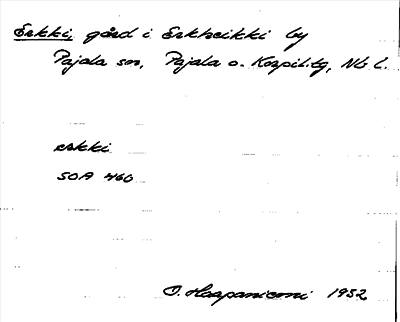 Erkki, gård i Erkheikki by
Pajala sn, Pajala o. Korpil. tg, Nb l.
ærkki
SOA 460
O. Haapaniemi 1932